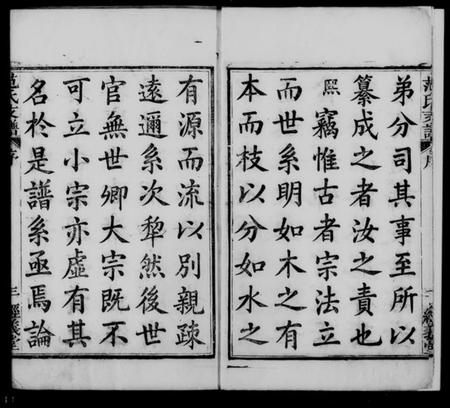 弟分司其事至所以
纂成之者汝之責也
熙竊惟古者宗法立
而世系明如木之有
本而枝以分如水之
有源而流以別親疎
遠邇系次犂然後世
官無世卿大宗既不
可立小宗亦虛有其
名於是譜系亟焉論
范氏支譜 序 三 經義堂